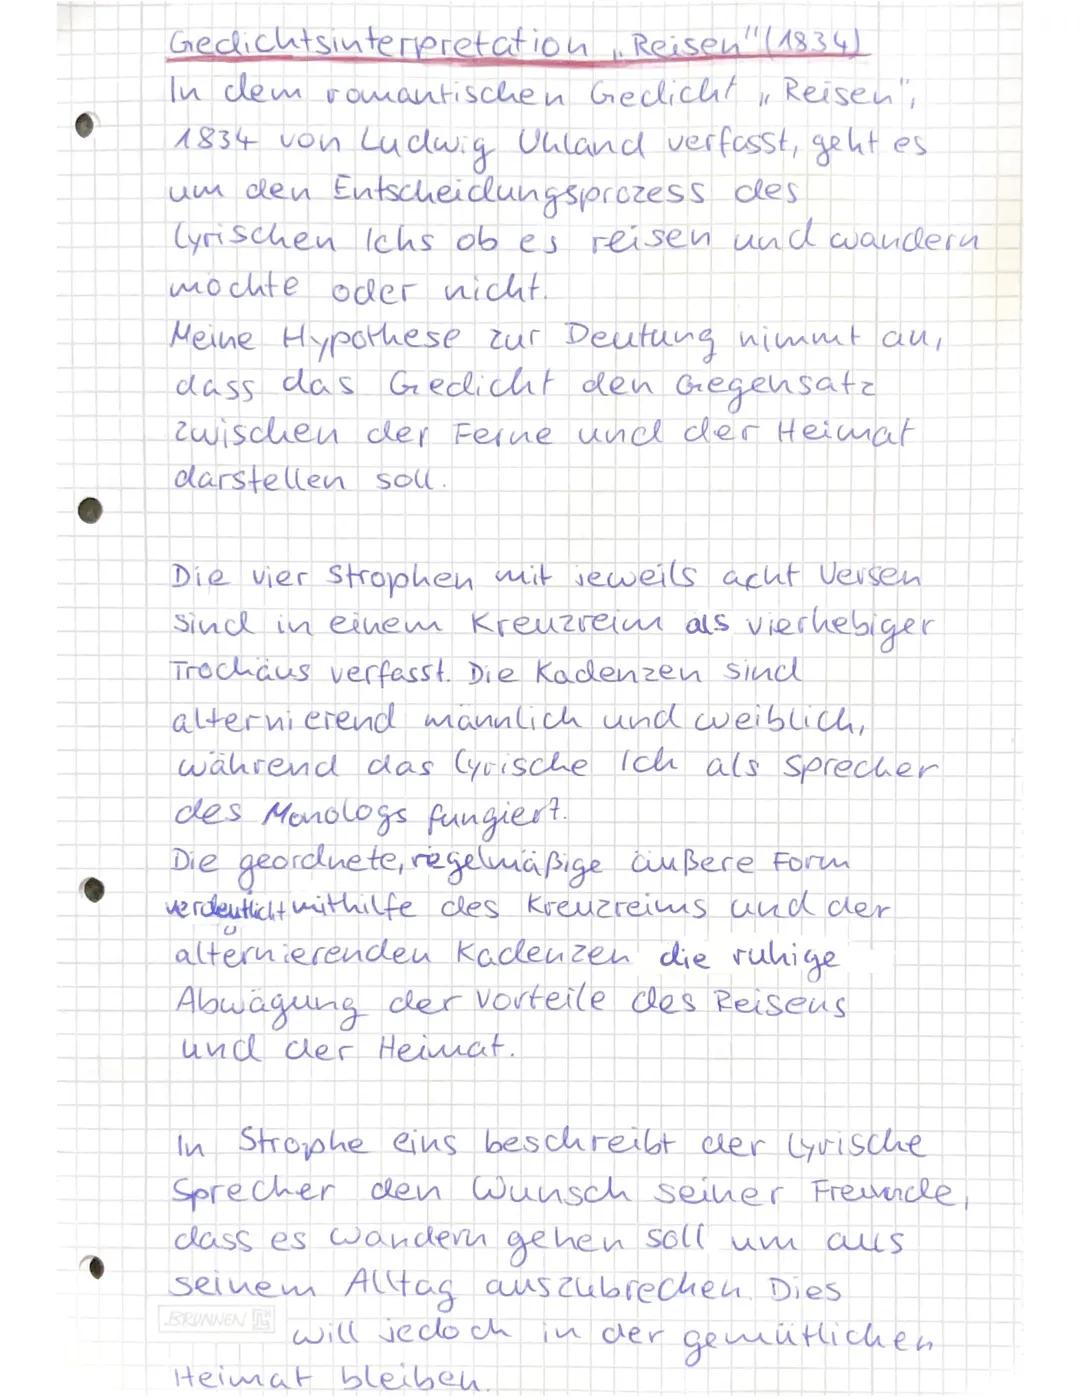 Gedichtsinterpretation „Reisen" (1834)
In dem romantischen Gedicht „Reisen",
1834 von Ludwig Uhland verfasst, geht es
um den Entscheidungsprozess des
lyrischen Ichs ob es reisen und wandern
möchte oder nicht.
Meine Hypothese zur Deutung nimmt an,
dass das Gedicht den Gegensatz
zwischen der Ferne und der Heimat
darstellen soll.
Die vier Strophen mit jeweils acht Versen
sind in einem Kreuzreim als vierhebiger
Trochäus verfasst. Die Kadenzen sind
alternierend männlich und weiblich,
während das lyrische Ich als Sprecher
des Monologs fungiert.
Die geordnete, regelmäßige äußere Form
verdeutlicht mithilfe des Kreuzreims und der
alternierenden Kadenzen die ruhige
Abwägung der Vorteile des Reisens
und der Heimat.
In Strophe eins beschreibt der lyrische
Sprecher den Wunsch seiner Freunde,
dass es wandern gehen soll um aus
seinem Alltag auszubrechen. Dies
BRUNNEN
will jedoch in der gemütlichen
Heimat bleiben.